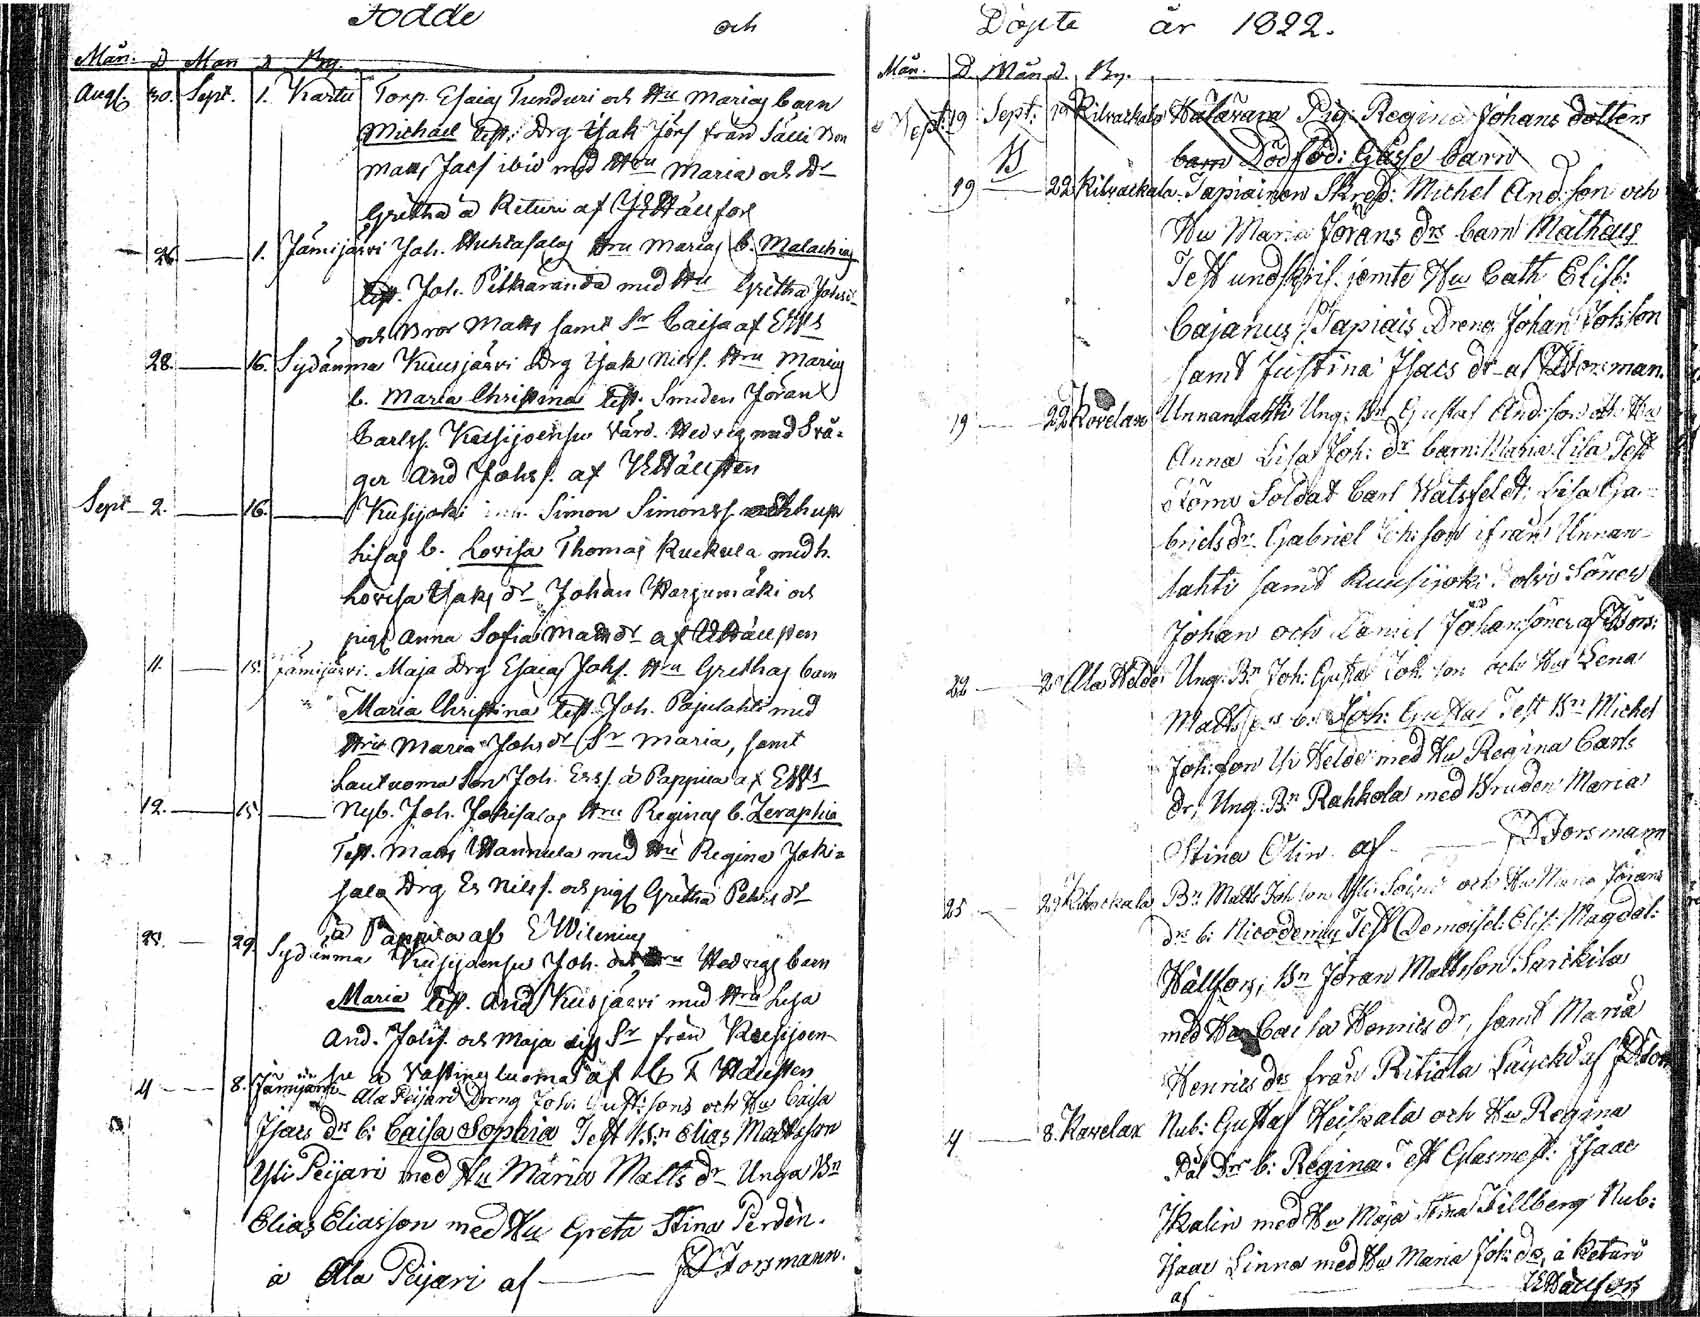 Födde och
Mån. D Mån D By.
Aug. 30. Sept. 1. Kartu Torp. Esaias Tunduri och Hu Marias barn
Michael test. Drg Isak Jörs från Sälli Bon
Matts Jacs ibid med Hru Maria och Dr
Gretha à Keturi af Hällfors
26. 1. Jämijärvi Joh. Huhtasalos Hru Marias b. Malachias
test. Joh. Pitkäranda med Hu Gretha Johsdr
och Bror Matts samt Sr Caisa af EWs
28. 16. Sydänma Kuusjärvi Drg Isak Nilss. Hru Marias
b. Maria Christina test. Smeden Jöran
Carlss. Kuusijoensu Värd. Hedvig med Svå-
ger And Johss. af Hällsten
Sept 2. 16. Kusijoki Simon Simonss. och hus
Lisas b. Lovisa Thomas Kuckula med h.
Lovisa Isaks dr Johan Harjumäki och
pig. Anna Sofia Matts dr af Hällsten
11. 15. Jämijärvi. Maja Drg Esaias Johs. Hru Grethas barn
Maria Christina test. Joh. Pajulahti med
Hru Maria Johsdr Sr Maria, samt
Lauttuoma Son Joh. Erss. à Pappila af EWs
12. 15. Nyb. Joh. Jokisalos Hru Reginas b. Zeraphia
Test. Matts Hannula med Hu Regina Joki-
sala Drg Es Nilss. och pig. Gretha Pehrs dr
à Pappila af E Wilenius
23. 29. Sydänma Kusijoensu Joh. Hru Hedvigs barn
Maria test. And Kuusjärvi med Hru Lisa
And. Johs. och Maja Sr från Kuusijoen-
su à Västinge luoma af Hällsten
4 8. Jämijärvi Ala Peijari Dreng Joh: Gust:sons och Hu Caisa
Isacs drs b: Caisa Sophia Test Bn Elias Mattsson
Yli Peijari med Hu Maria Matts dr Unga Bn
Elias Eliasson med Hu Greta Stina Perdén.
à Ala Peijari af JD Forsmann.
Döpte år 1822.
Mån. D. Mån d. By.
Sept: 19 Sept: 19 Kilvackala Hälävara Pig: Regina Johans dotters
barn Dödföd: Gosse barn
19 22 Kilvackala Tapiainen Skred: Michel And:son och
Hu Maria Jörans drs barn Matheus
Test undskrif. jemte Hu Cath Elisb:
Cajanus, Tapiais Dreng Johan Johsson
samt Justina Isacs dr af JD Forsman.
19 22 Kovelax Unnanlahti Ung: Bn Gustaf And:son och Hu
Anna Lisa Joh: dr barn: Maria Lisa Test
Soldat Carl Wätsfeldt: Lisa Ga-
briels dr Gabriel Joh:son ifrån Unnan-
lahti samt Kuusijoki Söner
Johan och Daniel Johansöner af Fors:
22 29 Ala Helde Ung: Bn Joh: Gustaf Joh:son och Hu Lena
Matts drs b: Joh: Gustaf Test Bn Michel
Joh:son Yli Helde med Hu Regina Carls
dr, Ung: Bn Rahkola med Bruden Maria
Stina Olin af JD Forsmann
25 29 Kilvackala Bn Matts Joh:son Yli Soini och Hu Maria Jörans
drs b: Nicodemus Test Demoisel: Elis: Magdal:
Hällfors, Bn Jöran Mattsson Sarikila
med Hu Caisa Henrics dr, samt Maria
Henrics dr från Ritiala af JD Fors
4 8. Kovelax Nub: Gustaf Heiskala och Hu Regina
Pål Drs b: Regina. Test Glasmest: Isaac
Ikalin med Hu Maja Stina Tillberg Nub:
Isaac Linna med Hu Maria Joh: dr, à Keturi
af Hällfors